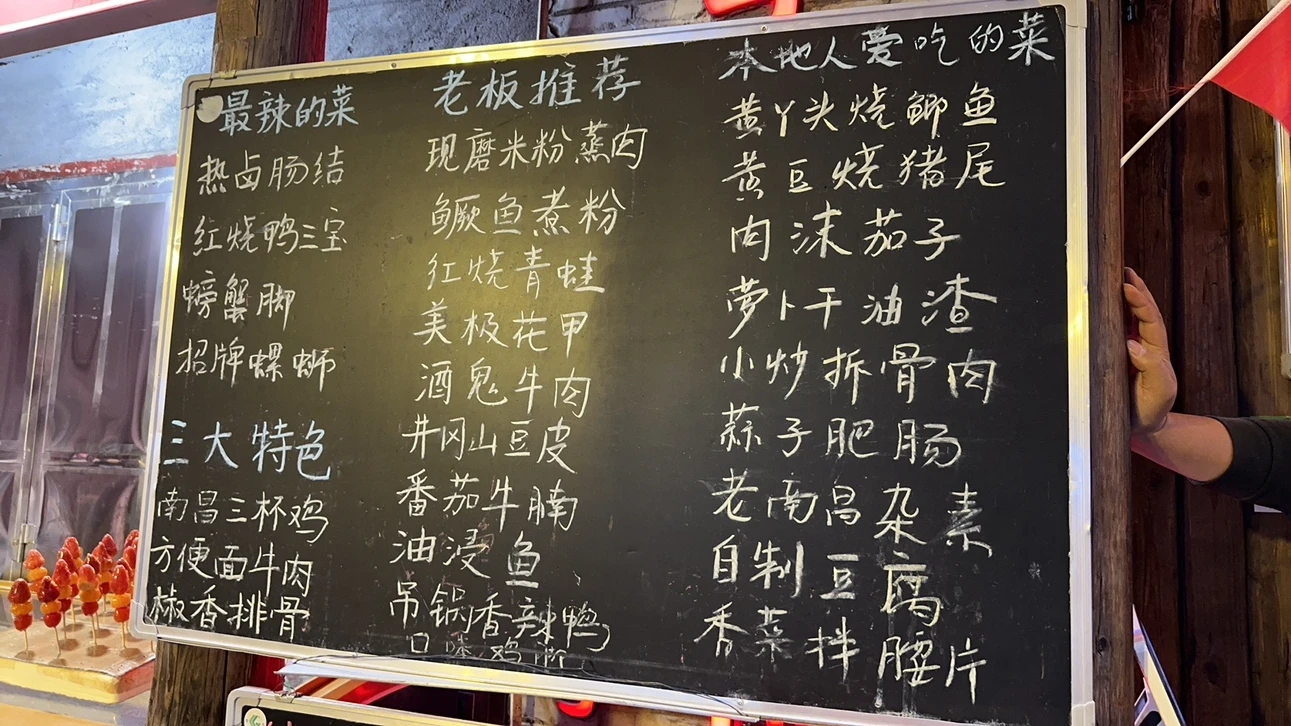 最辣的菜
热卤肠结
红烧鸭三宝
螃蟹脚
招牌螺蛳
三大特色
南昌三杯鸡
方便面牛肉
椒香排骨
老板推荐
现磨米粉蒸肉
鳜鱼煮粉
红烧青蛙
美极花甲
酒鬼牛肉
井冈山豆皮
番茄牛腩
油浸鱼
吊锅香辣鸭
口 鸡
本地人爱吃的菜
黄丫头烧鲫鱼
黄豆烧猪尾
肉沫茄子
萝卜干油渣
小炒拆骨肉
蒜子肥肠
老南昌杂素
自制豆腐
香菜拌腰片